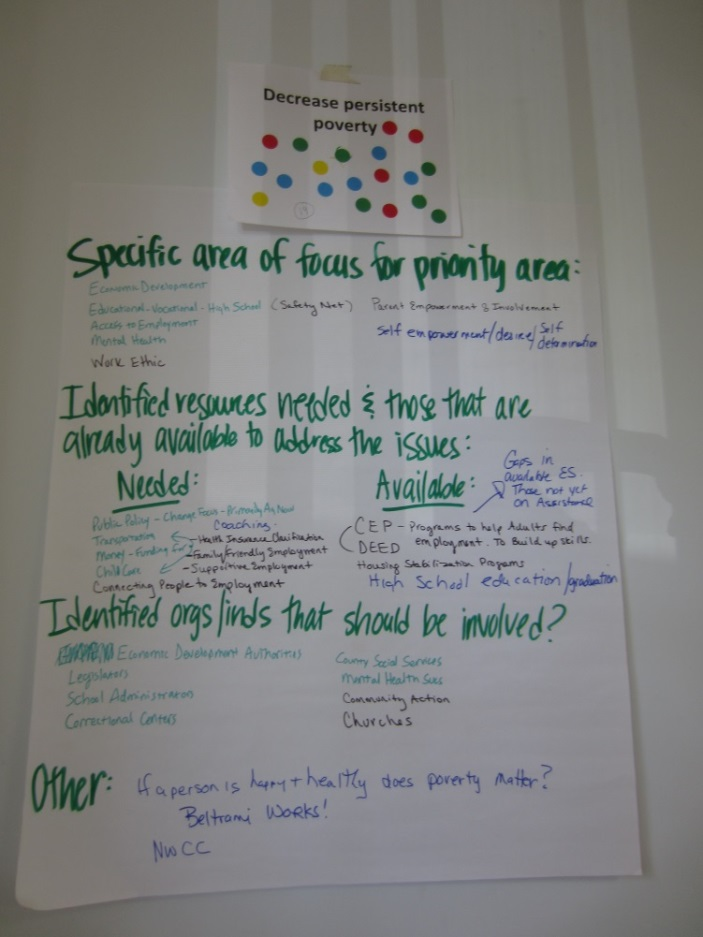 Decrease persistent
poverty
19
Specific area of focus for priority area:
Economic Development
Educational-Vocational-High School (Safety Net)
Access to Employment
Mental Health
Work Ethic
Parent Empowerment & Involvement
Self empowerment/desire/self
determination
Identified resources needed & those that are
already available to address the issues:
Needed:
Public Policy - Change Focus - Primarily Ag Now
Coaching
Transportation
- Health Insurance Clarification
Money - Funding for
- Family/Friendly Employment
Child Care
- Supportive Employment
Connecting People to Employment
Available:
Gaps in
available ES.
Those not yet
on Assistance
CEP - Programs to help Adults find
DEED employment. To Build up skills.
Housing Stabilization Programs
High School education/graduation
Identified orgs/inds that should be involved?
Economic Development Authorities
Legislators
School Administrators
Correctional Centers
County Social Services
Mental Health Svcs
Community Action
Churches
Other:
If a person is happy + healthy does poverty matter?
Beltrami Works!
NWCC